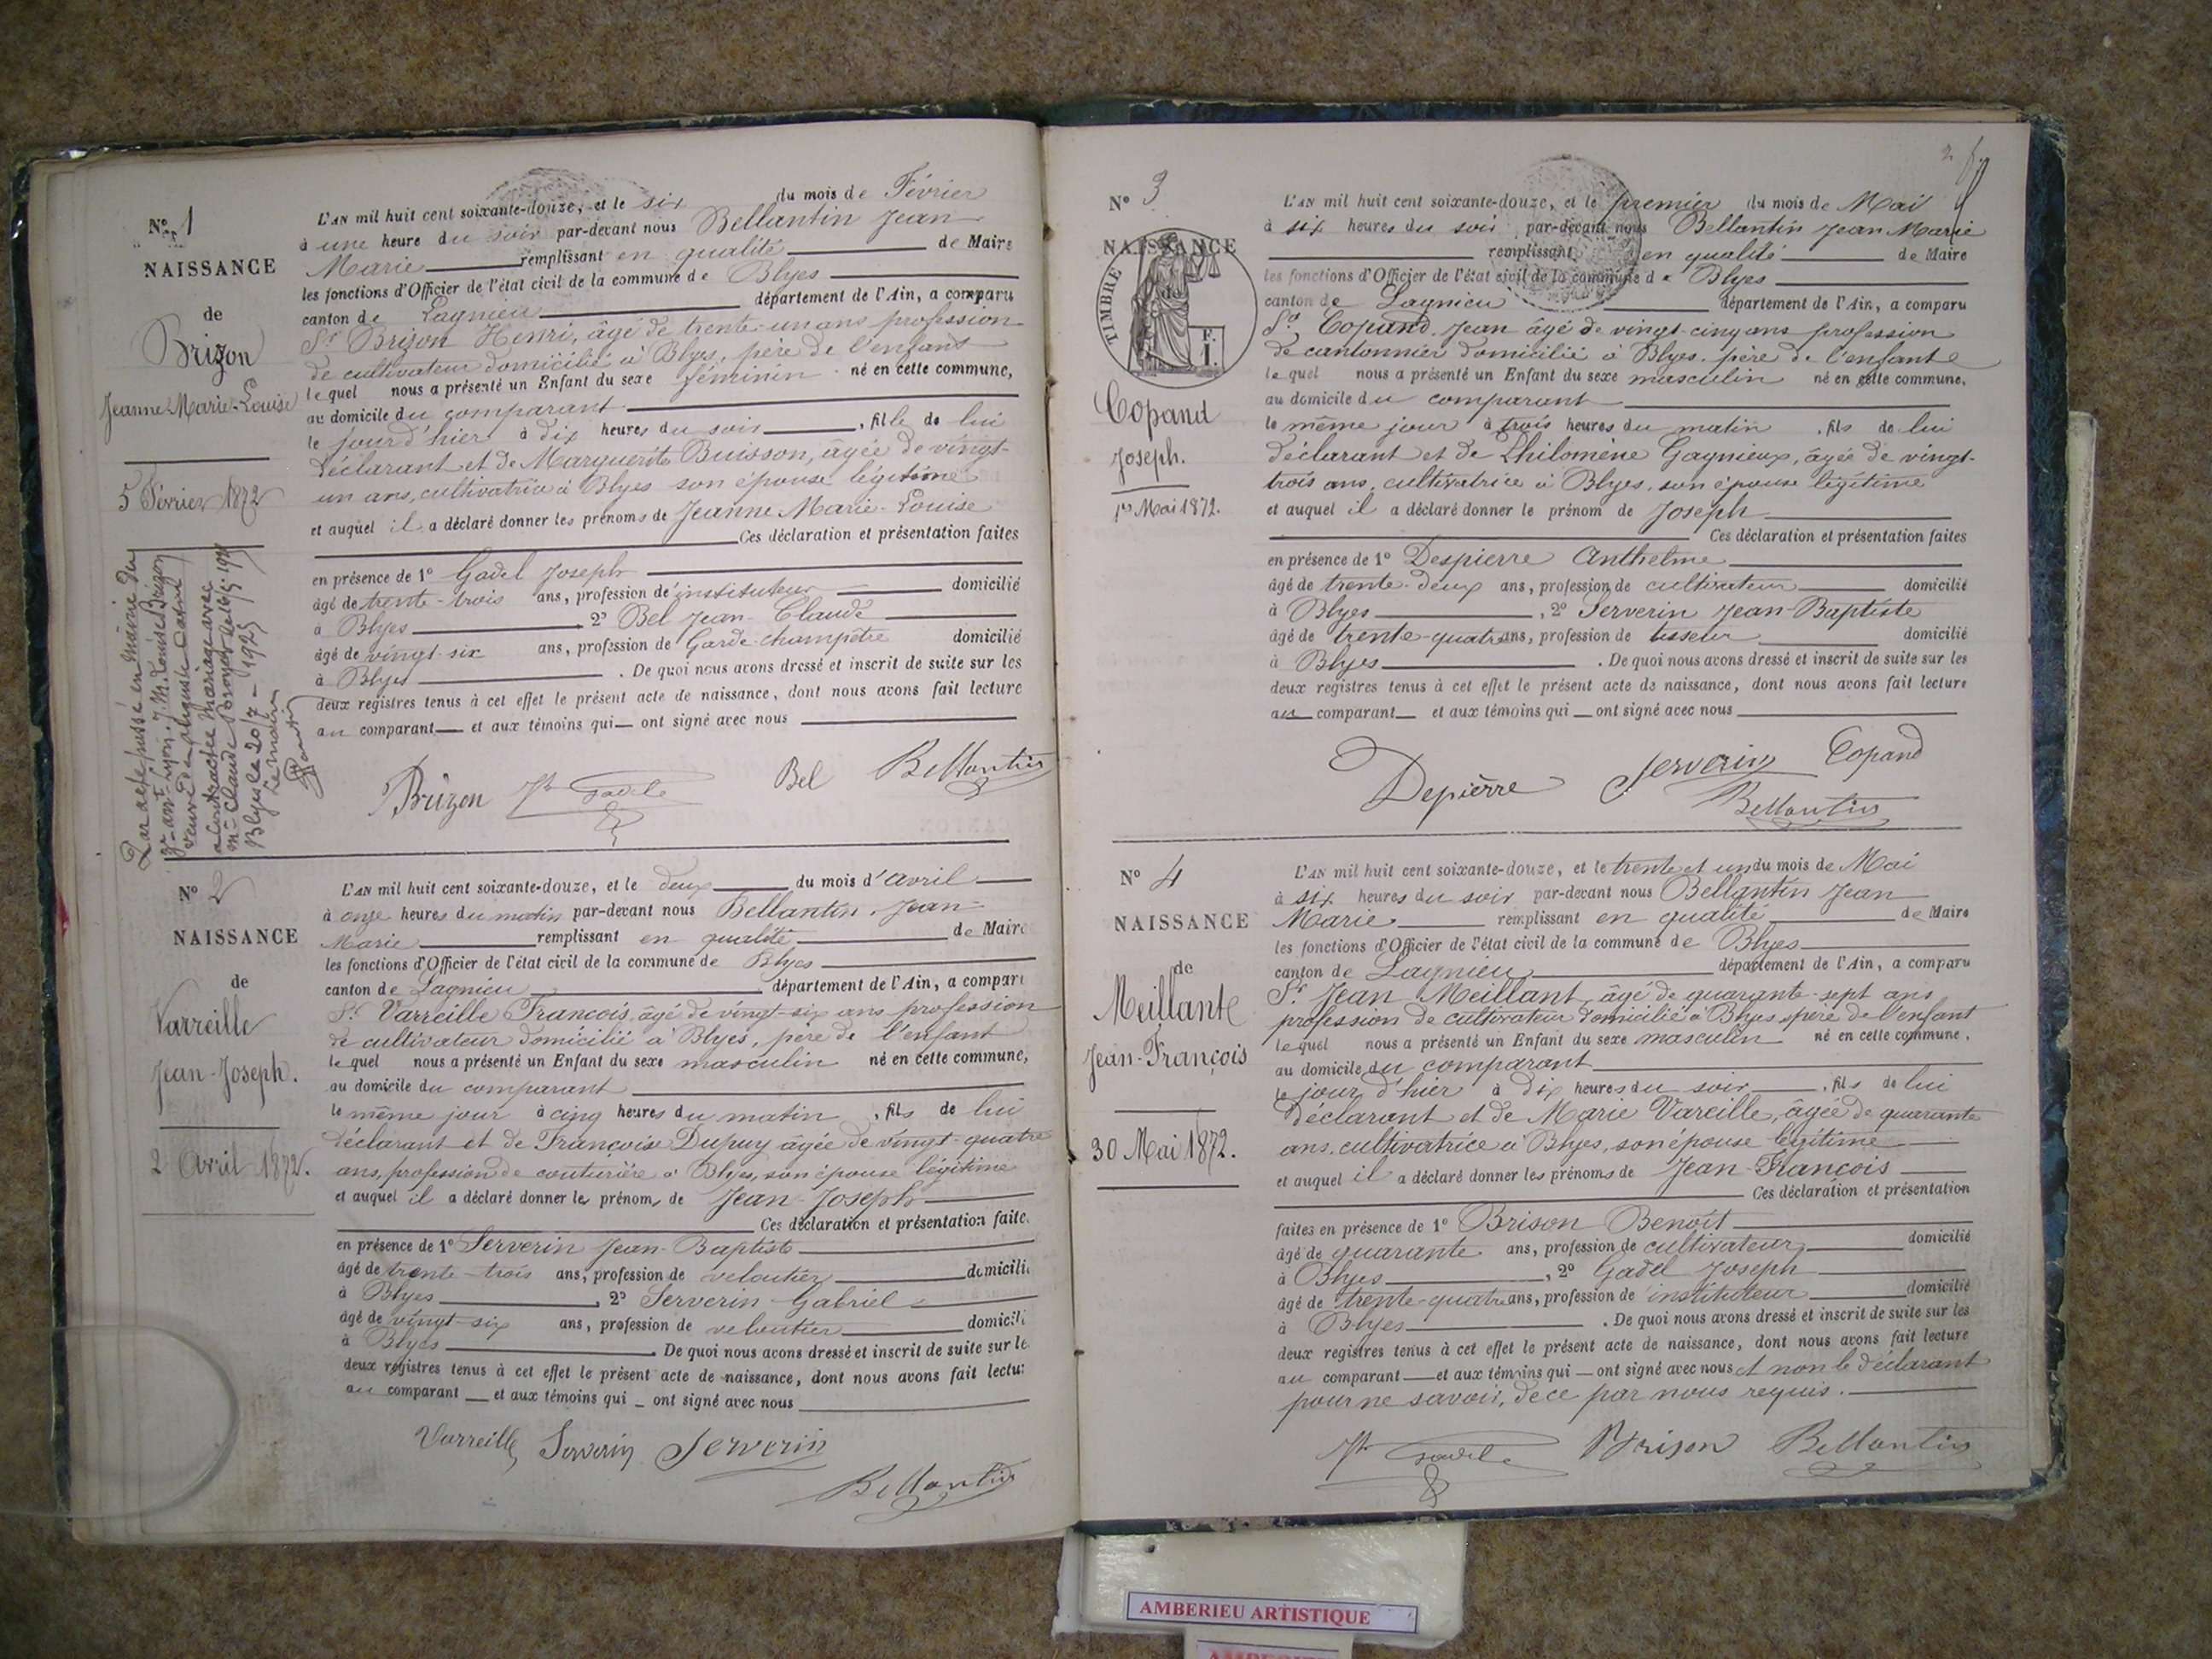 Nº 1
NAISSANCE
de
Brizon
Jeanne Marie-Louise
5 Février 1872
Par acte passé en mairie du
3e arrt Lyon, J. M. Louise Brizon
veuve de
a contracté mariage avec
Mr Claude
Blyes le 20/7-1925
Le maire
L'AN mil huit cent soixante-douze, et le six du mois de Février
à une heure du soir par-devant nous Bellantin Jean
Marie remplissant en qualité de Maire
les fonctions d'Officier de l'état civil de la commune de Blyes
canton de Lagnieu département de l'Ain, a comparu
Sr Brizon Henri, âgé de trente-un ans profession
de cultivateur domicilié à Blyes, père de l'enfant
lequel nous a présenté un Enfant du sexe féminin né en cette commune,
au domicile du comparant
le jour d'hier à dix heures du soir, fille de lui
déclarant et de Marguerite Buisson, âgée de vingt-
un ans, cultivatrice à Blyes son épouse légitime
et auquel il a déclaré donner les prénoms de Jeanne Marie-Louise
Ces déclaration et présentation faites
en présence de 1º Gadel Joseph
âgé de trente-trois ans, profession d'instituteur domicilié
à Blyes 2º Bel Jean-Claude
âgé de vingt-six ans, profession de Garde-champêtre domicilié
à Blyes. De quoi nous avons dressé et inscrit de suite sur les
deux registres tenus à cet effet le présent acte de naissance, dont nous avons fait lecture
au comparant et aux témoins qui ont signé avec nous
Brizon Jh Gadel Bel Bellantin
Nº 2
NAISSANCE
de
Varreille
Jean-Joseph.
2 Avril 1872.
L'AN mil huit cent soixante-douze, et le deux du mois d'avril
à onze heures du matin par-devant nous Bellantin, Jean-
Marie remplissant en qualité de Maire
les fonctions d'Officier de l'état civil de la commune de Blyes
canton de Lagnieu département de l'Ain, a comparu
Sr Varreille Francois, âgé de vingt-six ans profession
de cultivateur domicilié à Blyes, père de l'enfant
lequel nous a présenté un Enfant du sexe masculin né en cette commune,
au domicile du comparant
le même jour à cinq heures du matin, fils de lui
déclarant et de Françoise Dupuy âgée de vingt-quatre
ans, profession de couturière à Blyes, son épouse légitime
et auquel il a déclaré donner les prénoms de Jean-Joseph
Ces déclaration et présentation faites
en présence de 1º Serverin Jean-Baptiste
âgé de trente-trois ans, profession de veloutier domicilié
à Blyes, 2º Serverin-Gabriel
âgé de vingt-six ans, profession de veloutier domicilié
à Blyes. De quoi nous avons dressé et inscrit de suite sur le
deux registres tenus à cet effet le présent acte de naissance, dont nous avons fait lectu
au comparant et aux témoins qui ont signé avec nous
Varreille Serverin Serverin
Bellantin
2
Nº 3
NAISSANCE
de
TIMBRE
F.
1.
Copand
Joseph.
1er Mai 1872.
L'AN mil huit cent soixante-douze, et le premier du mois de Mai
à six heures du soir par-devant nous Bellantin Jean Marie
remplissant en qualité de Maire
les fonctions d'Officier de l'état civil de la commune de Blyes
canton de Lagnieu département de l'Ain, a comparu
Sr Copand, Jean âgé de vingt-cinq ans profession
de cantonnier domicilié à Blyes, père de l'enfant
lequel nous a présenté un Enfant du sexe masculin né en cette commune,
au domicile du comparant
le même jour à trois heures du matin, fils de lui
déclarant et de Philomène Gagnieux, âgée de vingt-
trois ans, cultivatrice à Blyes, son épouse légitime
et auquel il a déclaré donner le prénom de Joseph
Ces déclaration et présentation faites
en présence de 1º Despierre Anthelme
âgé de trente-deux ans, profession de cultivateur domicilié
à Blyes, 2º Serverin Jean-Baptiste
âgé de trente-quatre ans, profession de tisseur domicilié
à Blyes. De quoi nous avons dressé et inscrit de suite sur les
deux registres tenus à cet effet le présent acte de naissance, dont nous avons fait lecture
au comparant et aux témoins qui ont signé avec nous
Depièrre Serverin Copand
Bellantin
Nº 4
NAISSANCE
de
Meillant
Jean-François
30 Mai 1872.
L'AN mil huit cent soixante-douze, et le trente et un du mois de Mai
à six heures du soir par-devant nous Bellantin Jean
Marie remplissant en qualité de Maire
les fonctions d'Officier de l'état civil de la commune de Blyes
canton de Lagnieu département de l'Ain, a comparu
Sr Jean Meillant, âgé de quarante-sept ans
profession de cultivateur domicilié à Blyes, père de l'enfant
lequel nous a présenté un Enfant du sexe masculin né en cette commune,
au domicile du comparant
le jour d'hier à dix heures du soir, fils de lui
déclarant et de Marie Vareille, âgée de quarante
ans, cultivatrice à Blyes, son épouse légitime
et auquel il a déclaré donner les prénoms de Jean-François
Ces déclaration et présentation
faites en présence de 1º Brison Benoît
âgé de quarante ans, profession de cultivateur domicilié
à Blyes, 2º Gadel Joseph
âgé de trente-quatre ans, profession de instituteur domicilié
à Blyes. De quoi nous avons dressé et inscrit de suite sur les
deux registres tenus à cet effet le présent acte de naissance, dont nous avons fait lecture
au comparant et aux témoins qui ont signé avec nous et non le déclarant
pour ne savoir, de ce par nous requis.
Jh Gadel Brison Bellantin
AMBERIEU ARTISTIQUE